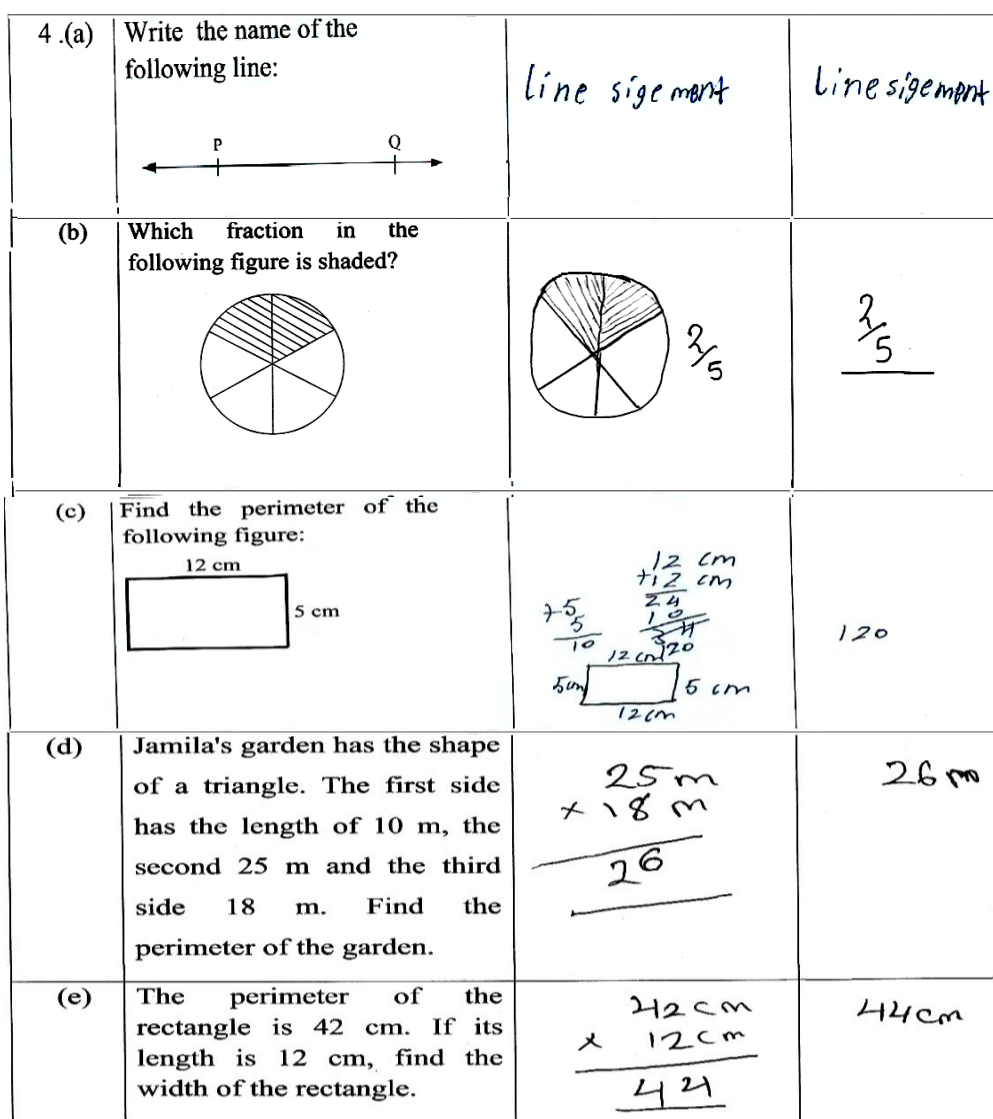 4 .(a) Write the name of the
following line:
P Q
line sigement
Line sigement
(b) Which fraction in the
following figure is shaded?
2/5
2/5
(c) Find the perimeter of the
following figure:
12 cm
5 cm
12 cm
+12 cm
24
10
+5
5
10
120
12 cm
5cm
5 cm
12cm
120
(d) Jamila's garden has the shape
of a triangle. The first side
has the length of 10 m, the
second 25 m and the third
side 18 m. Find the
perimeter of the garden.
25 m
× 18 m
26
26 m
(e) The perimeter of the
rectangle is 42 cm. If its
length is 12 cm, find the
width of the rectangle.
42cm
× 12cm
44cm